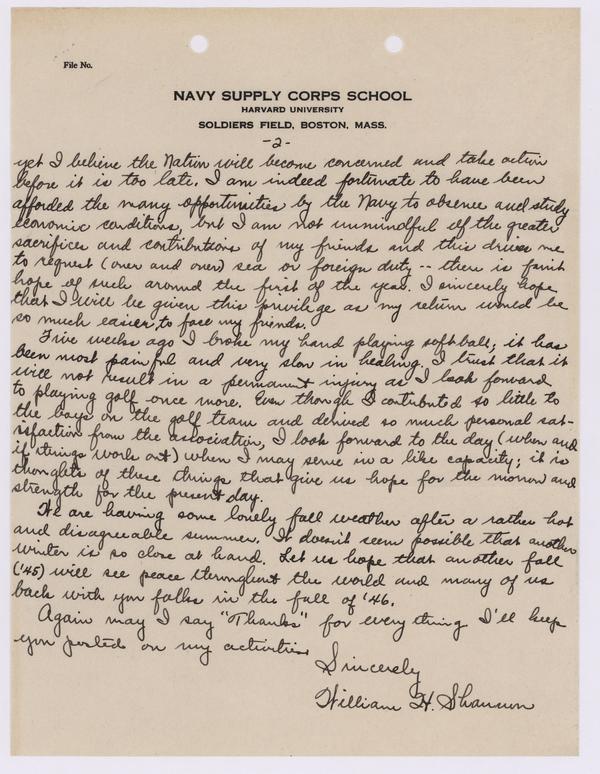 File No.
NAVY SUPPLY CORPS SCHOOL
HARVARD UNIVERSITY
SOLDIERS FIELD, BOSTON, MASS.
-2-
yet I believe the Nation will become concerned and take action
before it is too late. I am indeed fortunate to have been
afforded the many opportunities by the Navy to observe and study
economic conditions, but I am not unmindful of the greater
sacrifices and contributions of my friends and this drives me
to request (over and over) sea or foreign duty -- there is faint
hope of such around the first of the year. I sincerely hope
that I will be given this privilege as my return would be
so much easier, to face my friends.
Five weeks ago I broke my hand playing softball; it has
been most painful and very slow in healing. I trust that it
will not result in a permanent injury as I look forward
to playing golf once more. Even though I contributed so little to
the boys on the golf team and derived so much personal sat-
isfaction from the association, I look forward to the day (when and
if things work out) when I may serve in a like capacity; it is
thoughts of these things that give us hope for the morrow and
strength for the present day.
We are having some lovely fall weather after a rather hot
and disagreeable summer. It doesn't seem possible that another
winter is so close at hand. Let us hope that another fall
('45) will see peace throughout the world and many of us
back with you folks in the fall of '46.
Again may I say "Thanks" for everything I'll keep
you posted on my activities
Sincerely
William H. Shannon